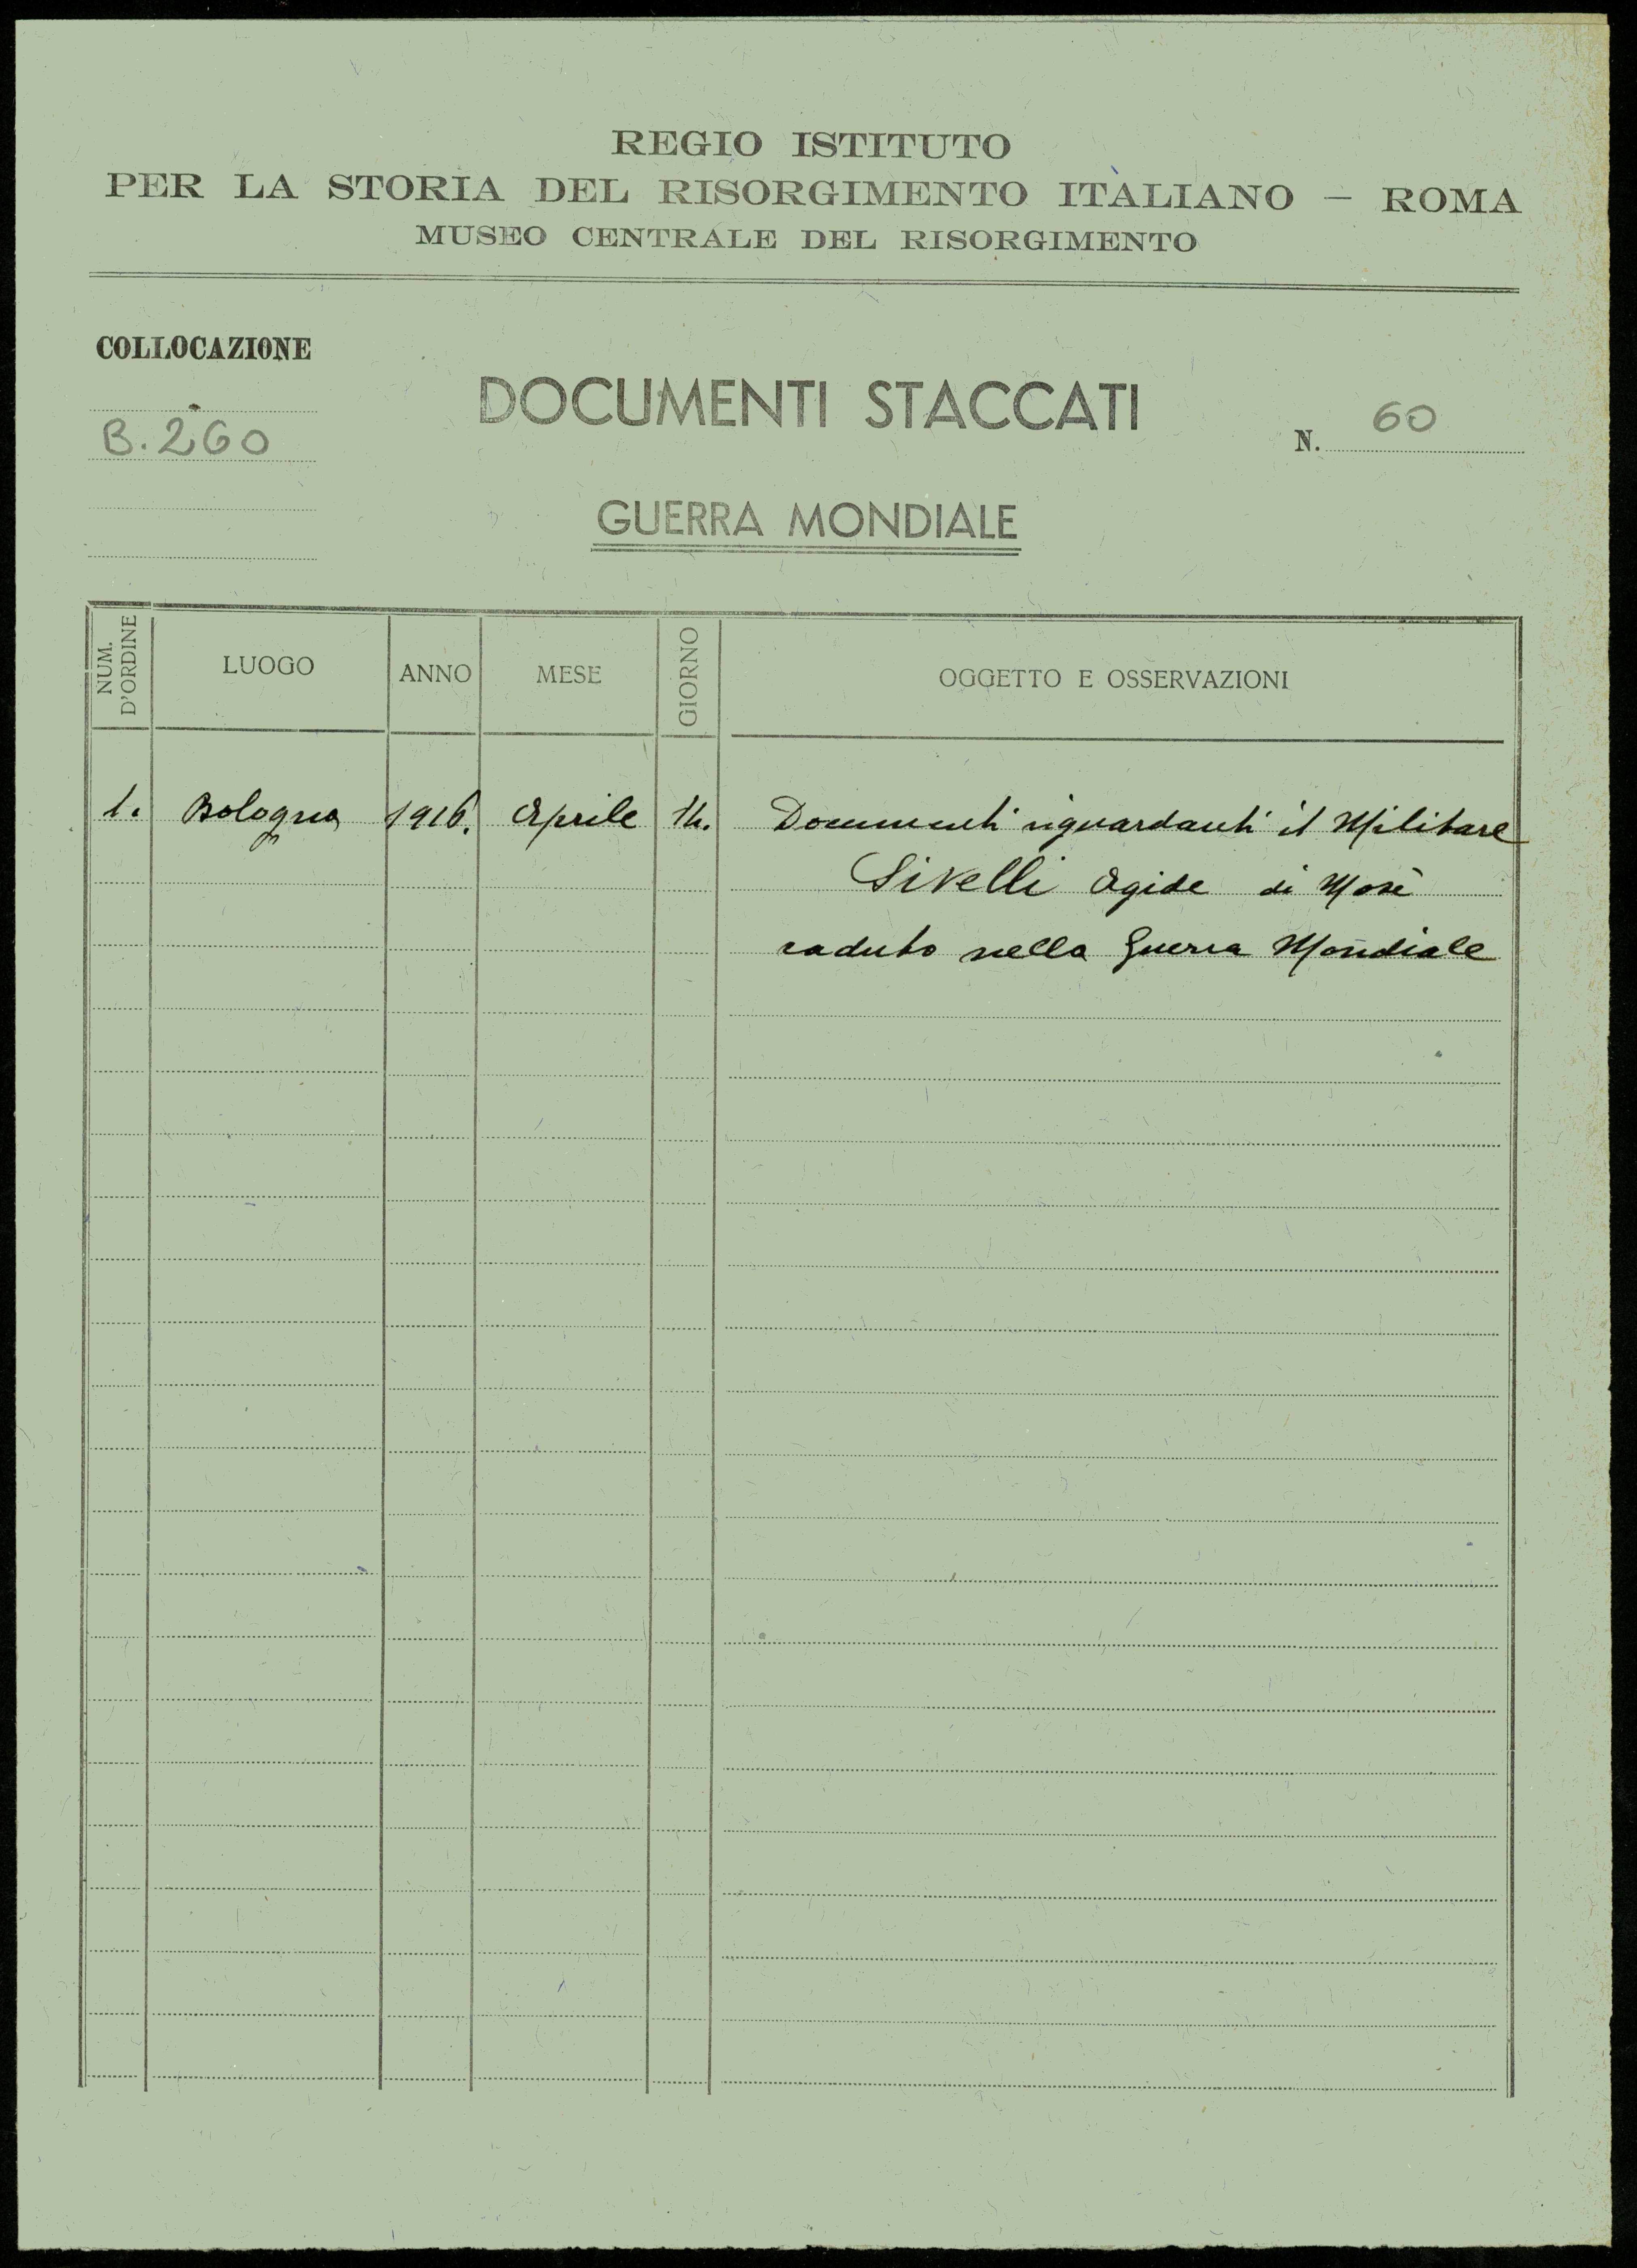 REGIO ISTITUTO
PER LA STORIA DEL RISORGIMENTO ITALIANO — ROMA
MUSEO CENTRALE DEL RISORGIMENTO
COLLOCAZIONE
B. 260
DOCUMENTI STACCATI
N. 60
GUERRA MONDIALE
NUM. D'ORDINE LUOGO ANNO MESE GIORNO OGGETTO E OSSERVAZIONI
1. Bologna 1916. Aprile 14. Documenti riguardanti il Militare
Sivelli Egide di Mosè
caduto nella Guerra Mondiale